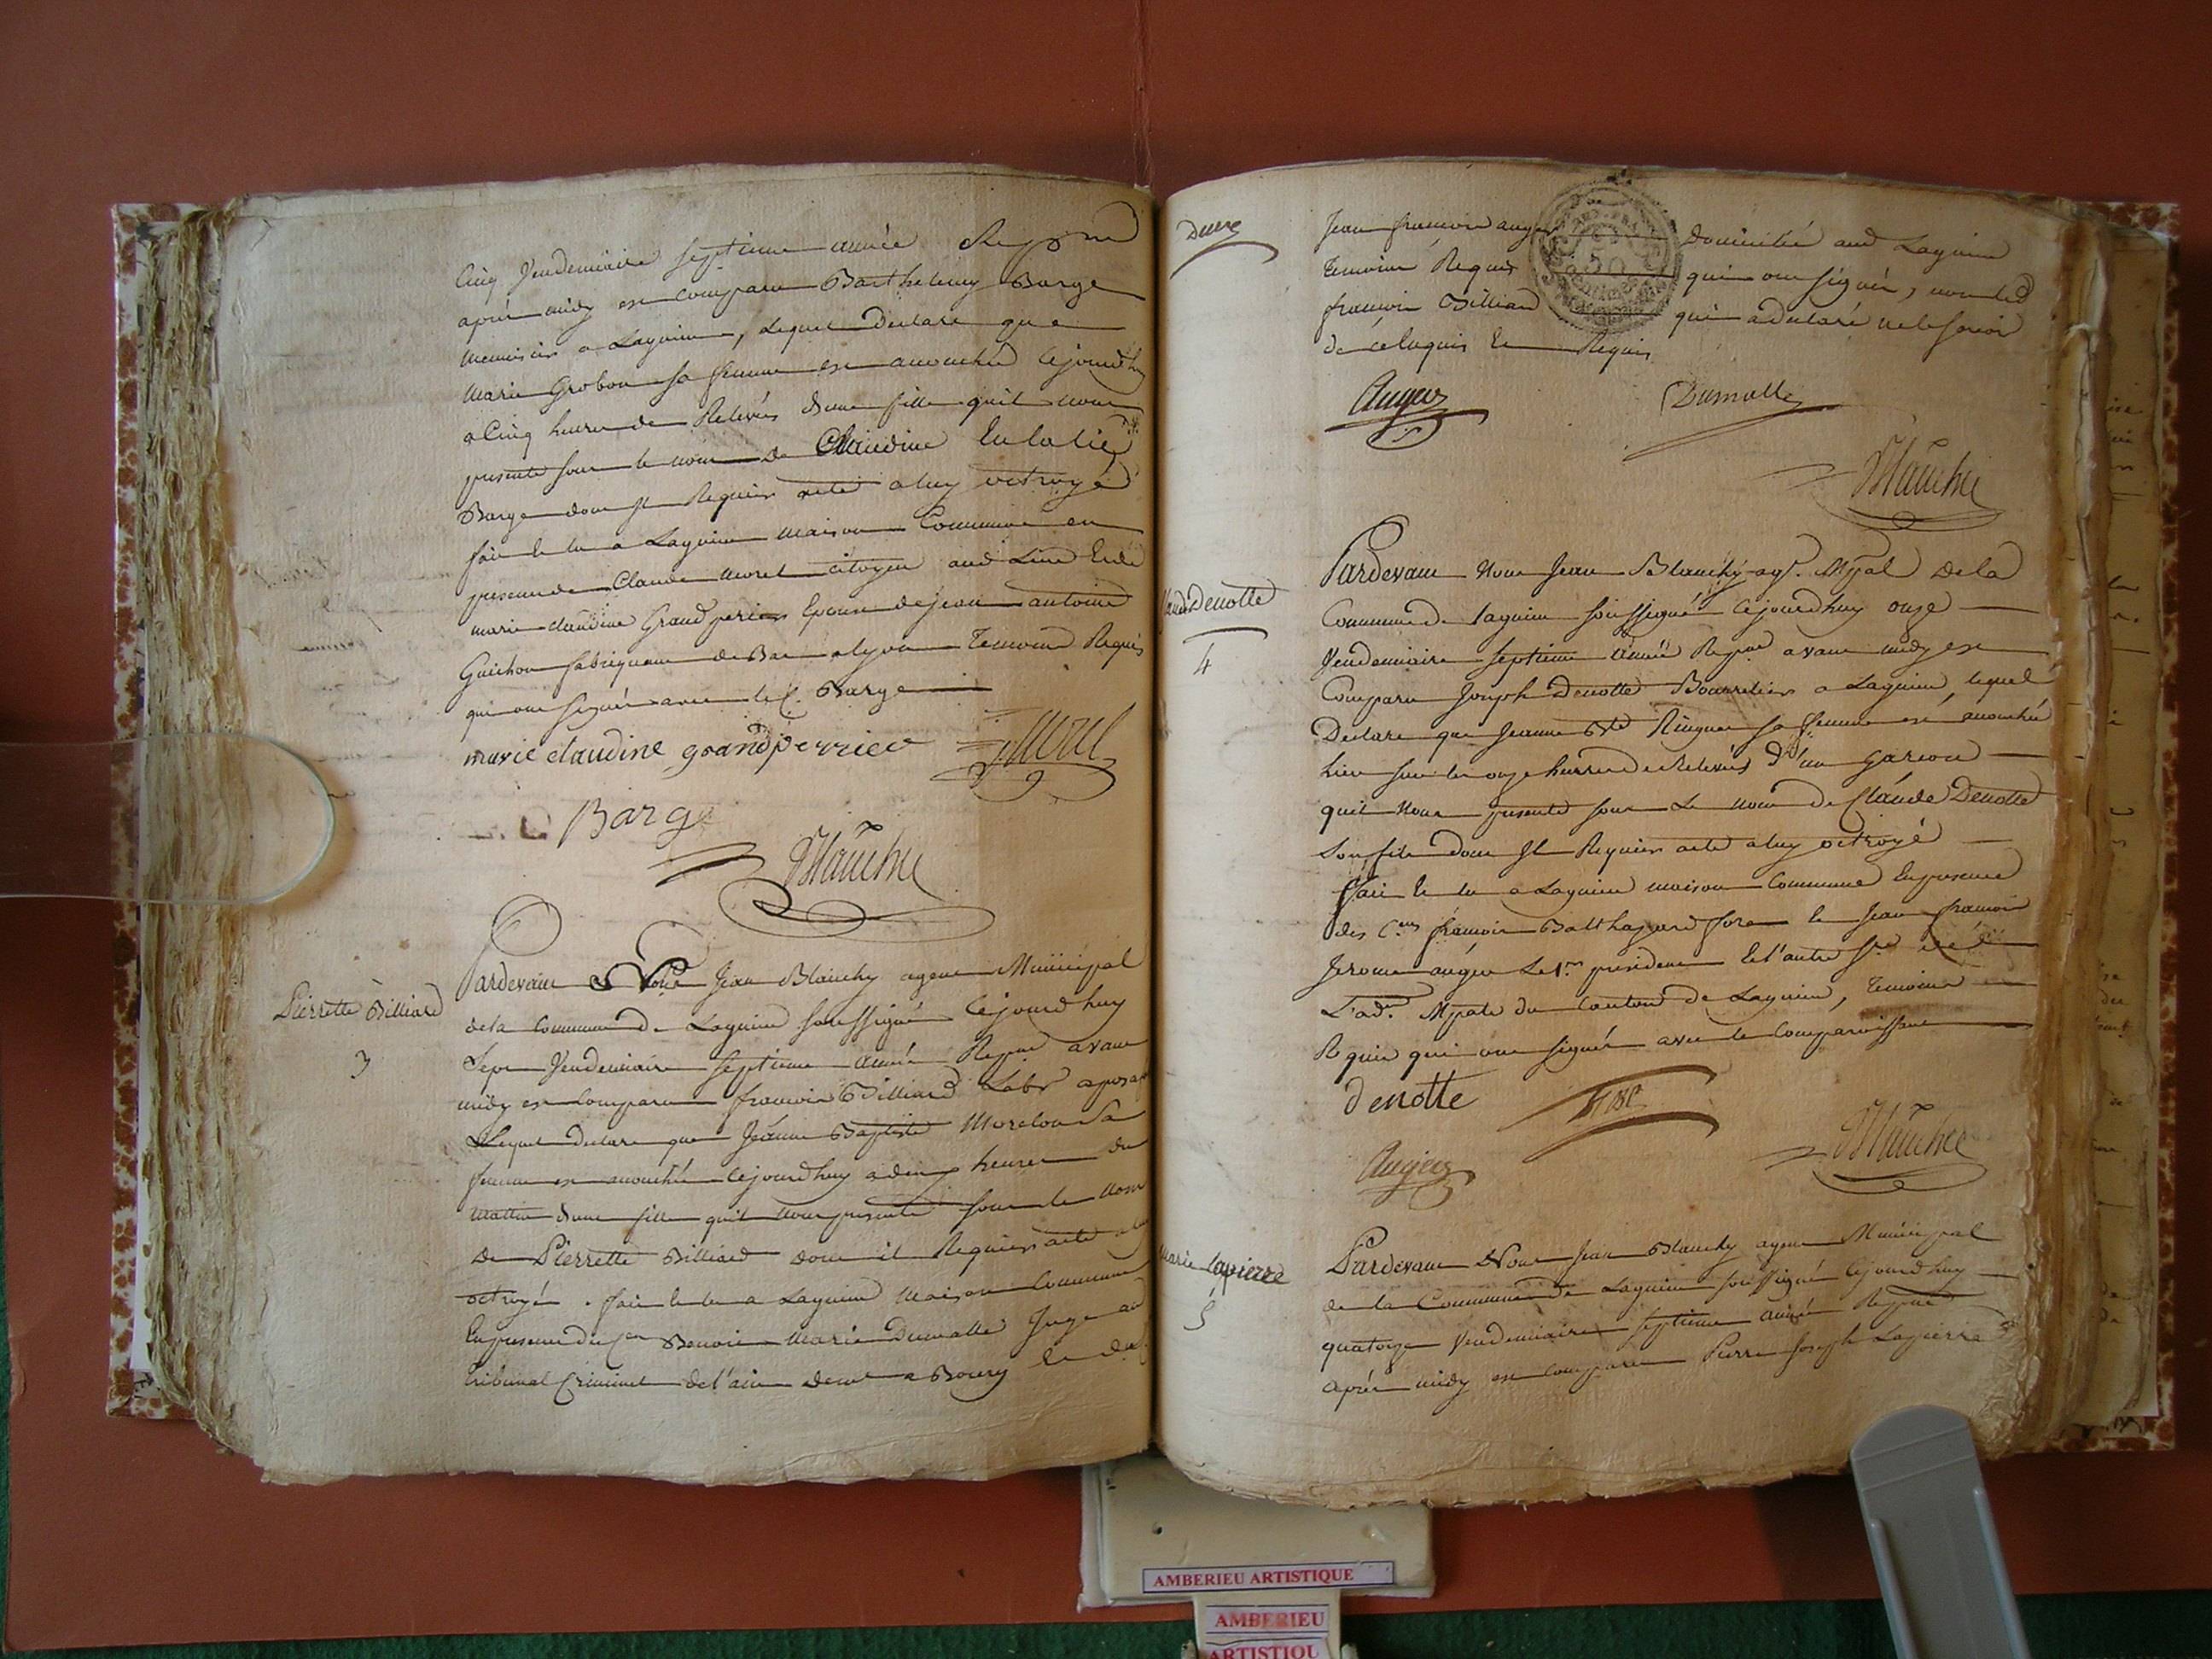 Cinq Vendemiaire septieme année Repne
après midy est comparu Barthelemy Barge
menuisier a Lagnieu, Lequel Declare que
Marie Grobon sa femme est accouchée cejourdhuy
a Cinq heures de Relevés d'une fille qu'il nous
presente sous le nom de Claudine Eulalie
Barge dont Il Requier acte a luy octroyé
fait et lu a Lagnieu maison Commune en
presence de Claude Morel citoyen aud Lieu Et de
marie claudine Grandperier Epouse de jean antoine
Guichon fabriquant de Bas a lyon Temoins Requis
qui ont signés avec le C. Barge
marie claudine grandperrier Morel
Barge
Blanchy
Pierrette Billiard
3
Pardevant Nous Jean Blanchy agent Municipal
de la Commune de Lagnieu soussigné Cejourdhuy
Sept Vendemiaire septieme année Repne avant
midy est comparu francois Billiard Labr a posafol
Lequel declare que Jeanne Baptiste Morelon Sa
femme est accouchée Cejourdhuy a deux heures du
Matin d'une fille qu'il nous presente sous le nom
de Pierrette Billiard dont il Requier acte a luy
octroyé. fait et lu a Lagnieu Maison Commune
En presence du Cen Benoit Marie Dumolle Juge au
tribunal Criminel de l'ain demt a Bourg Et de
Deux
Jean francois auger domicilié aud Lagnieu
temoins Requis qui ont signés, non led
francois Billiard qui a declaré ne le savoir
de ce Enquis Et Requis
50
Auger Dumolle
Blanchy
Claude Denotte
4
Pardevant Nous Jean Blanchy agt. Mpal De la
Commune de Lagnieu soussigné Cejourdhuy onze
Vendemiaire septieme année Repne avant midy est
Comparu Joseph Denotte Bourrelier a Lagnieu, lequel
Declare que Jeanne Bte Ringuet sa femme est accouchée
hier sur les onze heures de Relevés D'un garcon
quil Nous presente sous Le nom de Claude Denotte
Son fils dont Il Requier acte a luy octroyé
fait Et lu a Lagnieu maison Commune En presence
des Cens francois Balthazard fore et Jean francois
Jerome auger Le 1er president Et l'autre Sre de
L'adon. Mpale du Canton de Lagnieu, Temoins
Requis qui ont signés avec le Comparoissant
denotte fore
Auger Blanchy
Marie Lapierre
5
Pardevant Nous Jean Blanchy agent Municipal
de la Commune de Lagnieu soussigné Cejourdhuy
quatorze Vendemiaire septieme année Repne
après midy est comparu Pierre Joseph Lapierre
AMBERIEU ARTISTIQUE
AMBERIEU
ARTISTIQU